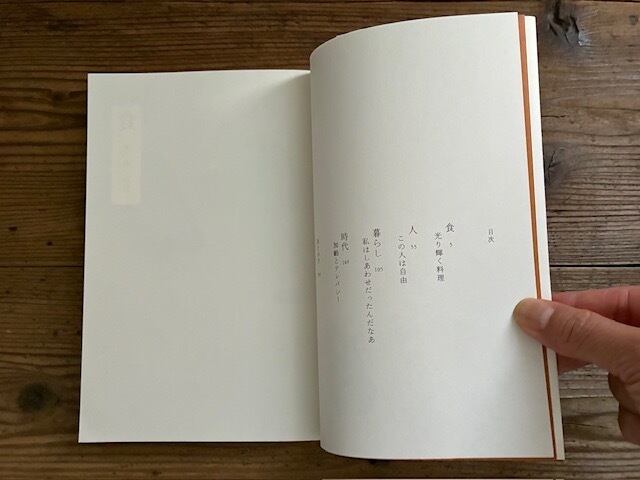 目次
食 5
光り輝く料理
人 55
この人は自由
暮らし 105
私はしあわせだったんだなあ
時代
加齢とテレパシー